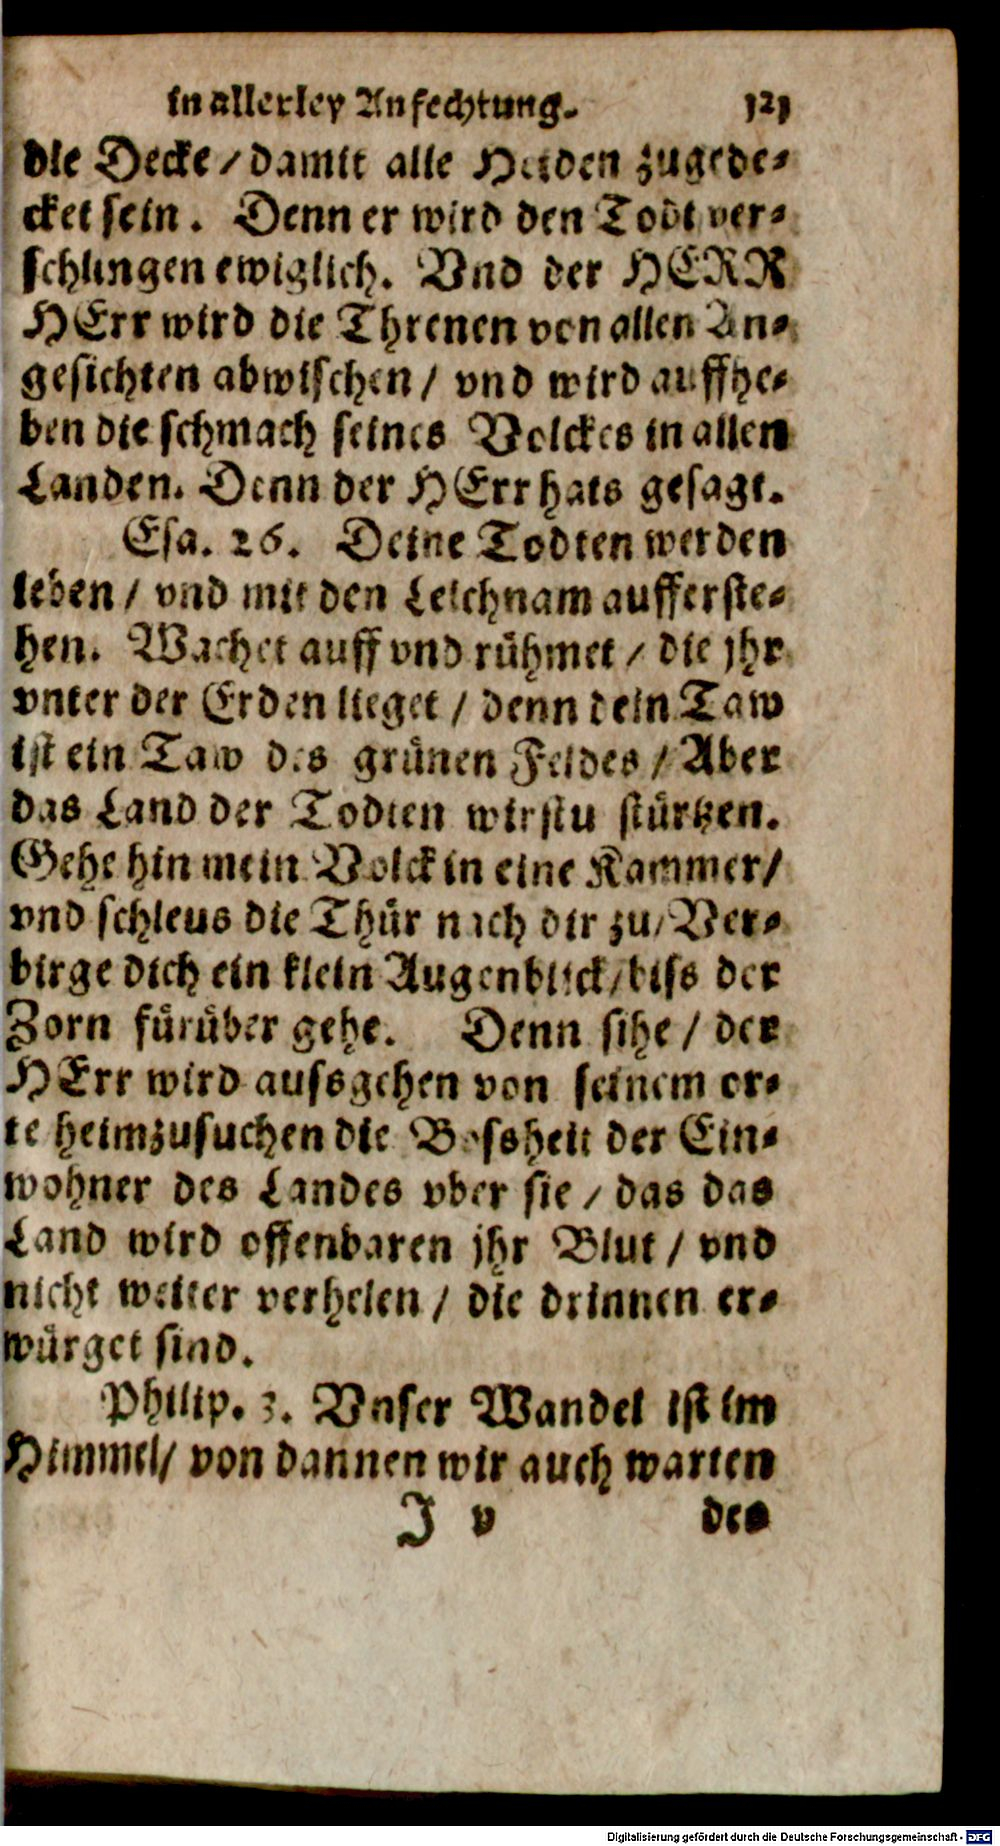 in allerley Anfechtung. 121
die Decke / damit alle Heiden zugede⸗
cket sein. Denn er wird den Todt ver⸗
schlingen ewiglich. Vnd der HERR
HErr wird die Threnen von allen An⸗
gesichten abwischen / vnd wird auffhe⸗
ben die schmach seines Volckes in allen
Landen. Denn der HErr hats gesagt.
Esa. 26. Deine Todten werden
leben / vnd mit den Leichnam aufferste⸗
hen. Wachet auff vnd rühmet / die jhr
vnter der Erden lieget / denn dein Taw
ist ein Taw des grünen Feldes / Aber
das Land der Todten wirstu stürtzen.
Gehe hin mein Volck in eine Kammer /
vnd schleus die Thür nach dir zu / Ver⸗
birge dich ein klein Augenblick / biss der
Zorn fürüber gehe. Denn sihe / der
HErr wird aussgehen von seinem or⸗
te heimzusuchen die Bossheit der Ein⸗
wohner des Landes vber sie / das das
Land wird offenbaren jhr Blut / vnd
nicht weiter verhelen / die drinnen er⸗
würget sind.
Philip. 3. Vnser Wandel ist im
Himmel / von dannen wir auch warten
J v des
Digitalisierung gefördert durch die Deutsche Forschungsgemeinschaft - DFG